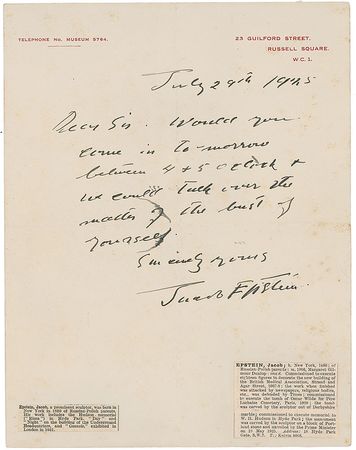 TELEPHONE No. MUSEUM 5764.
23 GUILFORD STREET,
RUSSELL SQUARE.
W.C. 1.
July 29th 1925
Dear Sir. Would you
come in to-morrow
between 4 & 5 o'clock &
we could talk over the
matter of the bust of
yourself.
Sincerely yours
Jacob Epstein.
Epstein, Jacob, a prominent sculptor, was born in
New York in 1880 of Russian-Polish parents.
His work includes the Hudson memorial
("Rima") in Hyde Park, "Day" and
"Night" on the building of the Underground
Headquarters, and "Genesis," exhibited in
London in 1931.
EPSTEIN, Jacob; b. New York, 1880; of
Russian-Polish parents; m. 1906, Margaret Gil-
mour Dunlop; Commissioned to execute
eighteen figures to decorate the new building of
the British Medical Association, Strand and
Agar Street, 1907-8; the work when finished
was attacked by newspapers, religious bodies,
etc., was defended by Times; commissioned
to execute the tomb of Oscar Wilde for Père
Lachaise Cemetery, Paris, 1909; the tomb
was carved by the sculptor out of Derbyshire
marble; commissioned to execute memorial to
W. H. Hudson in Hyde Park; the monument
was carved by the sculptor on a block of Port-
land stone and unveiled by the Prime Minister
on 19 May 1925. Address: 18 Hyde Park
Gate, S.W.7. T.: Kelvin